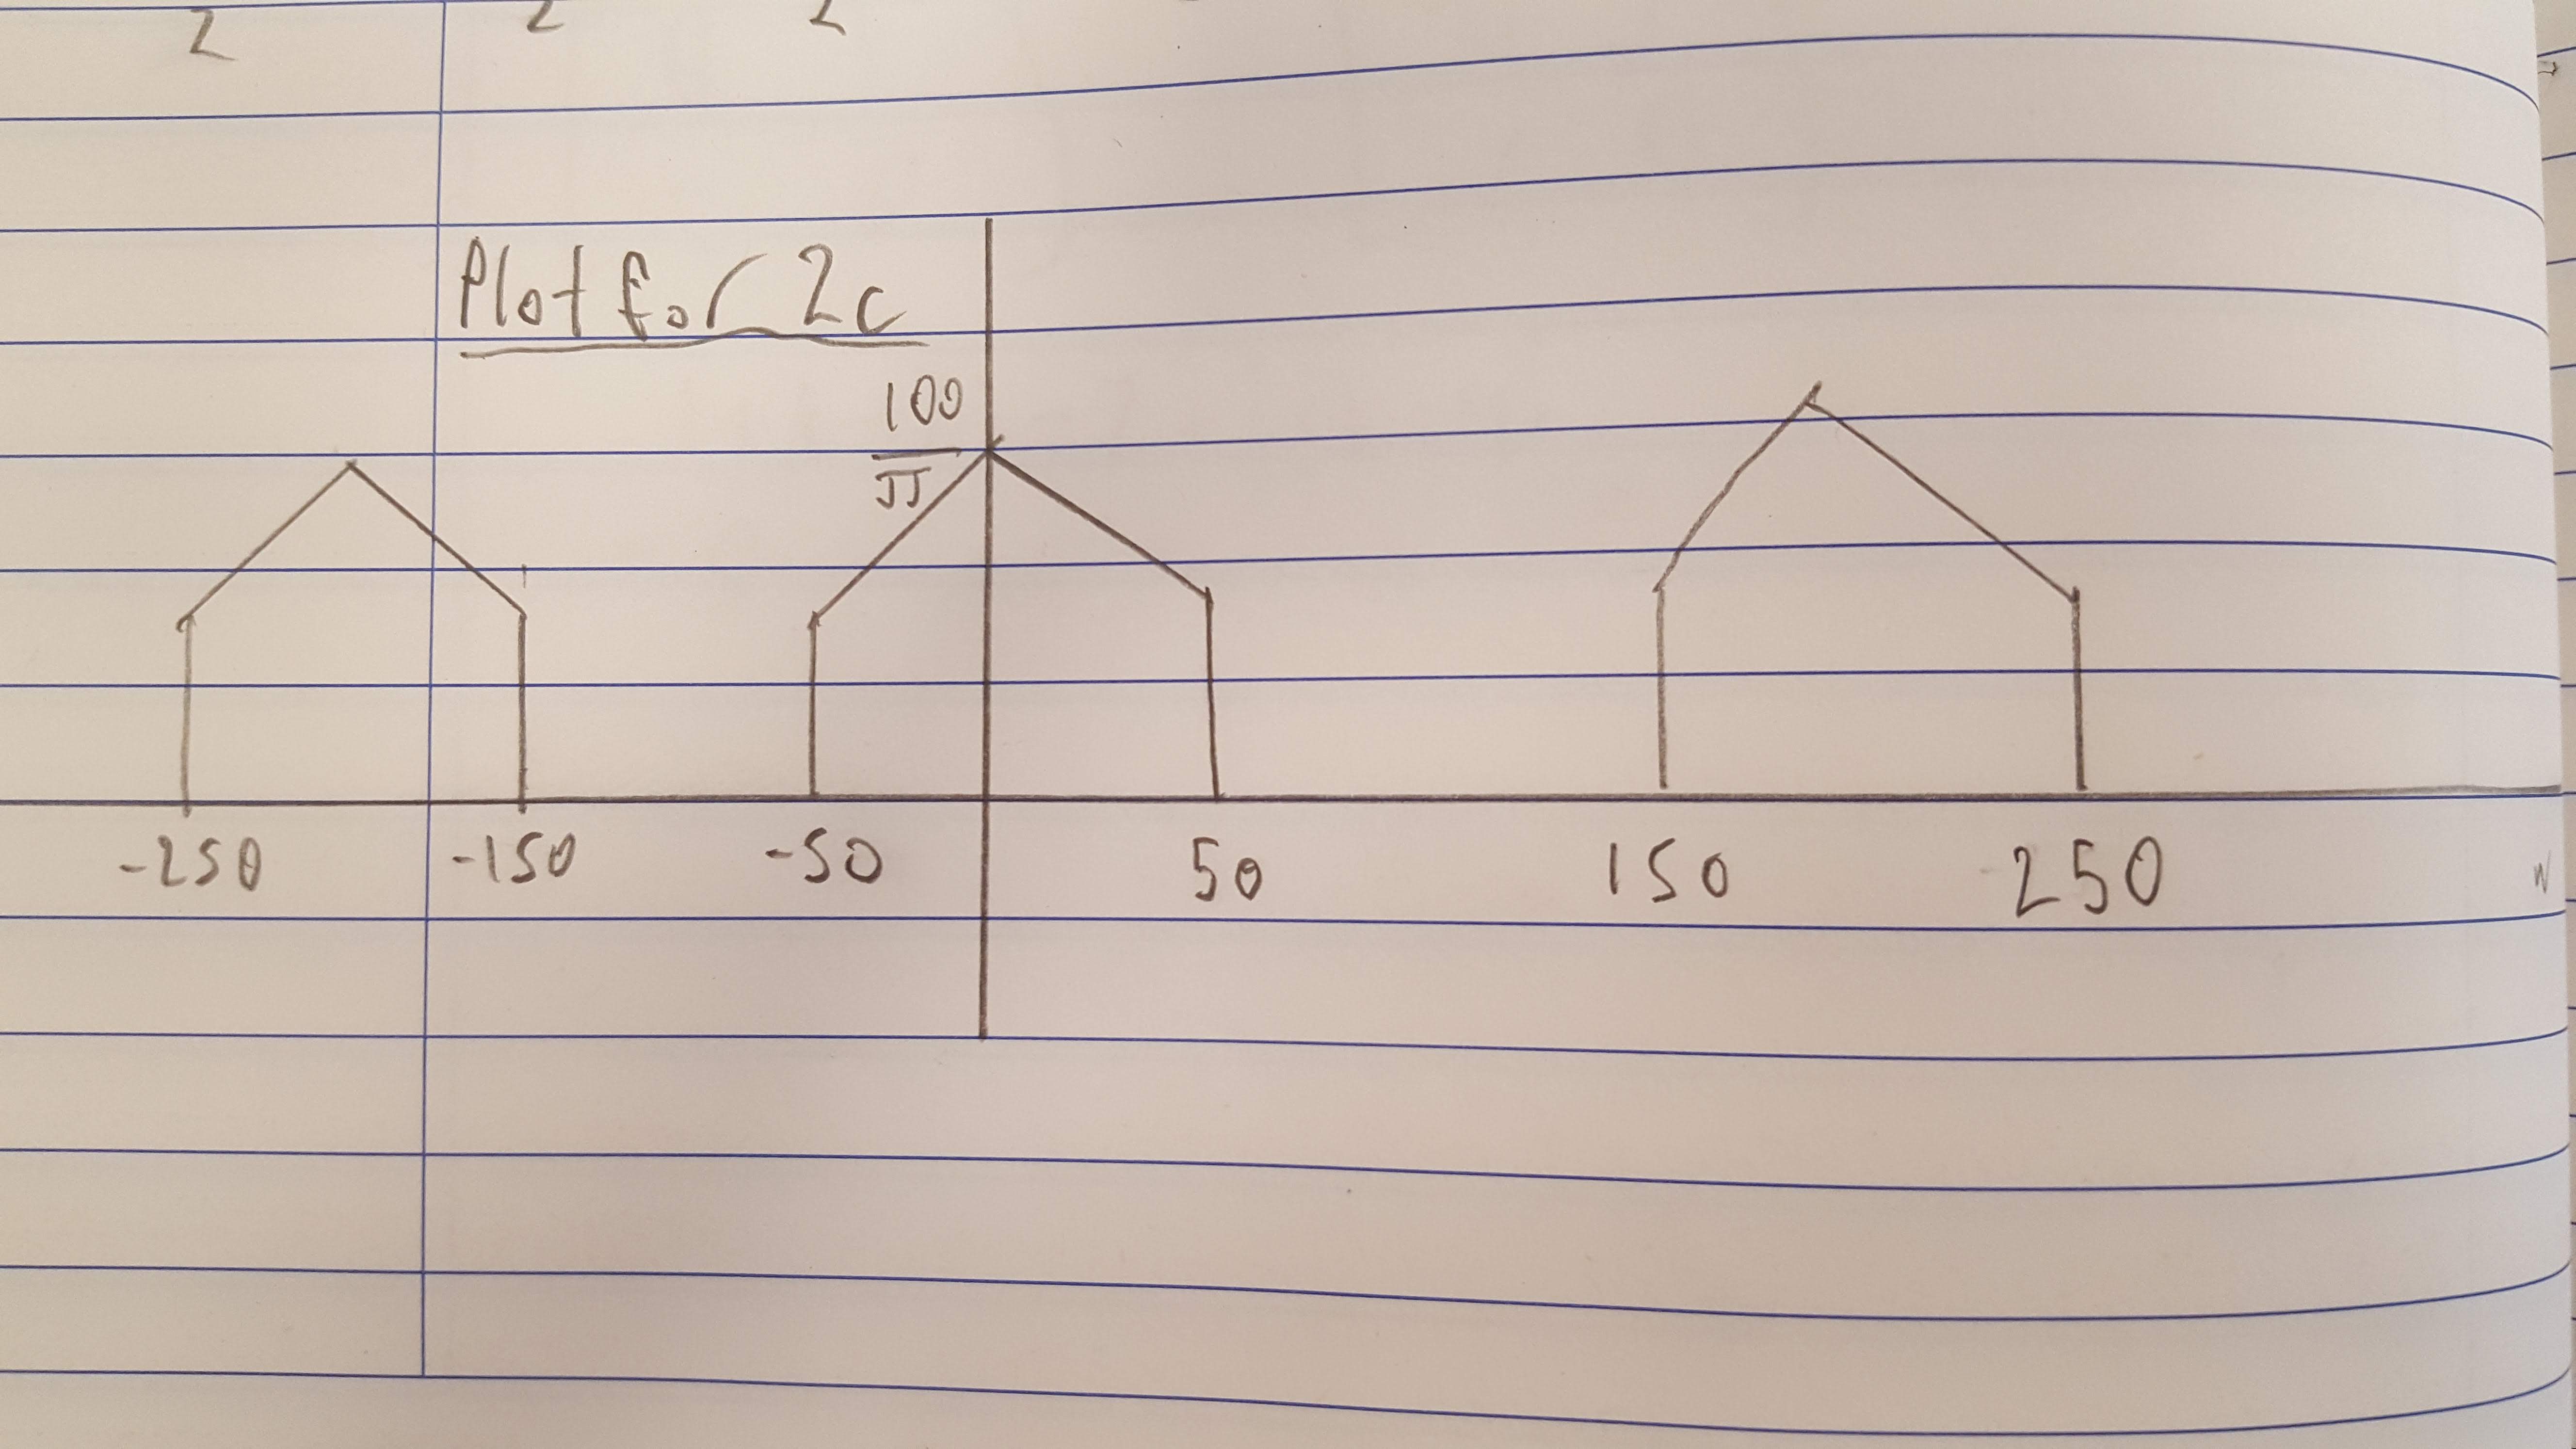 Plot for 2c
100
π
-250 -150 -50 50 150 250
w